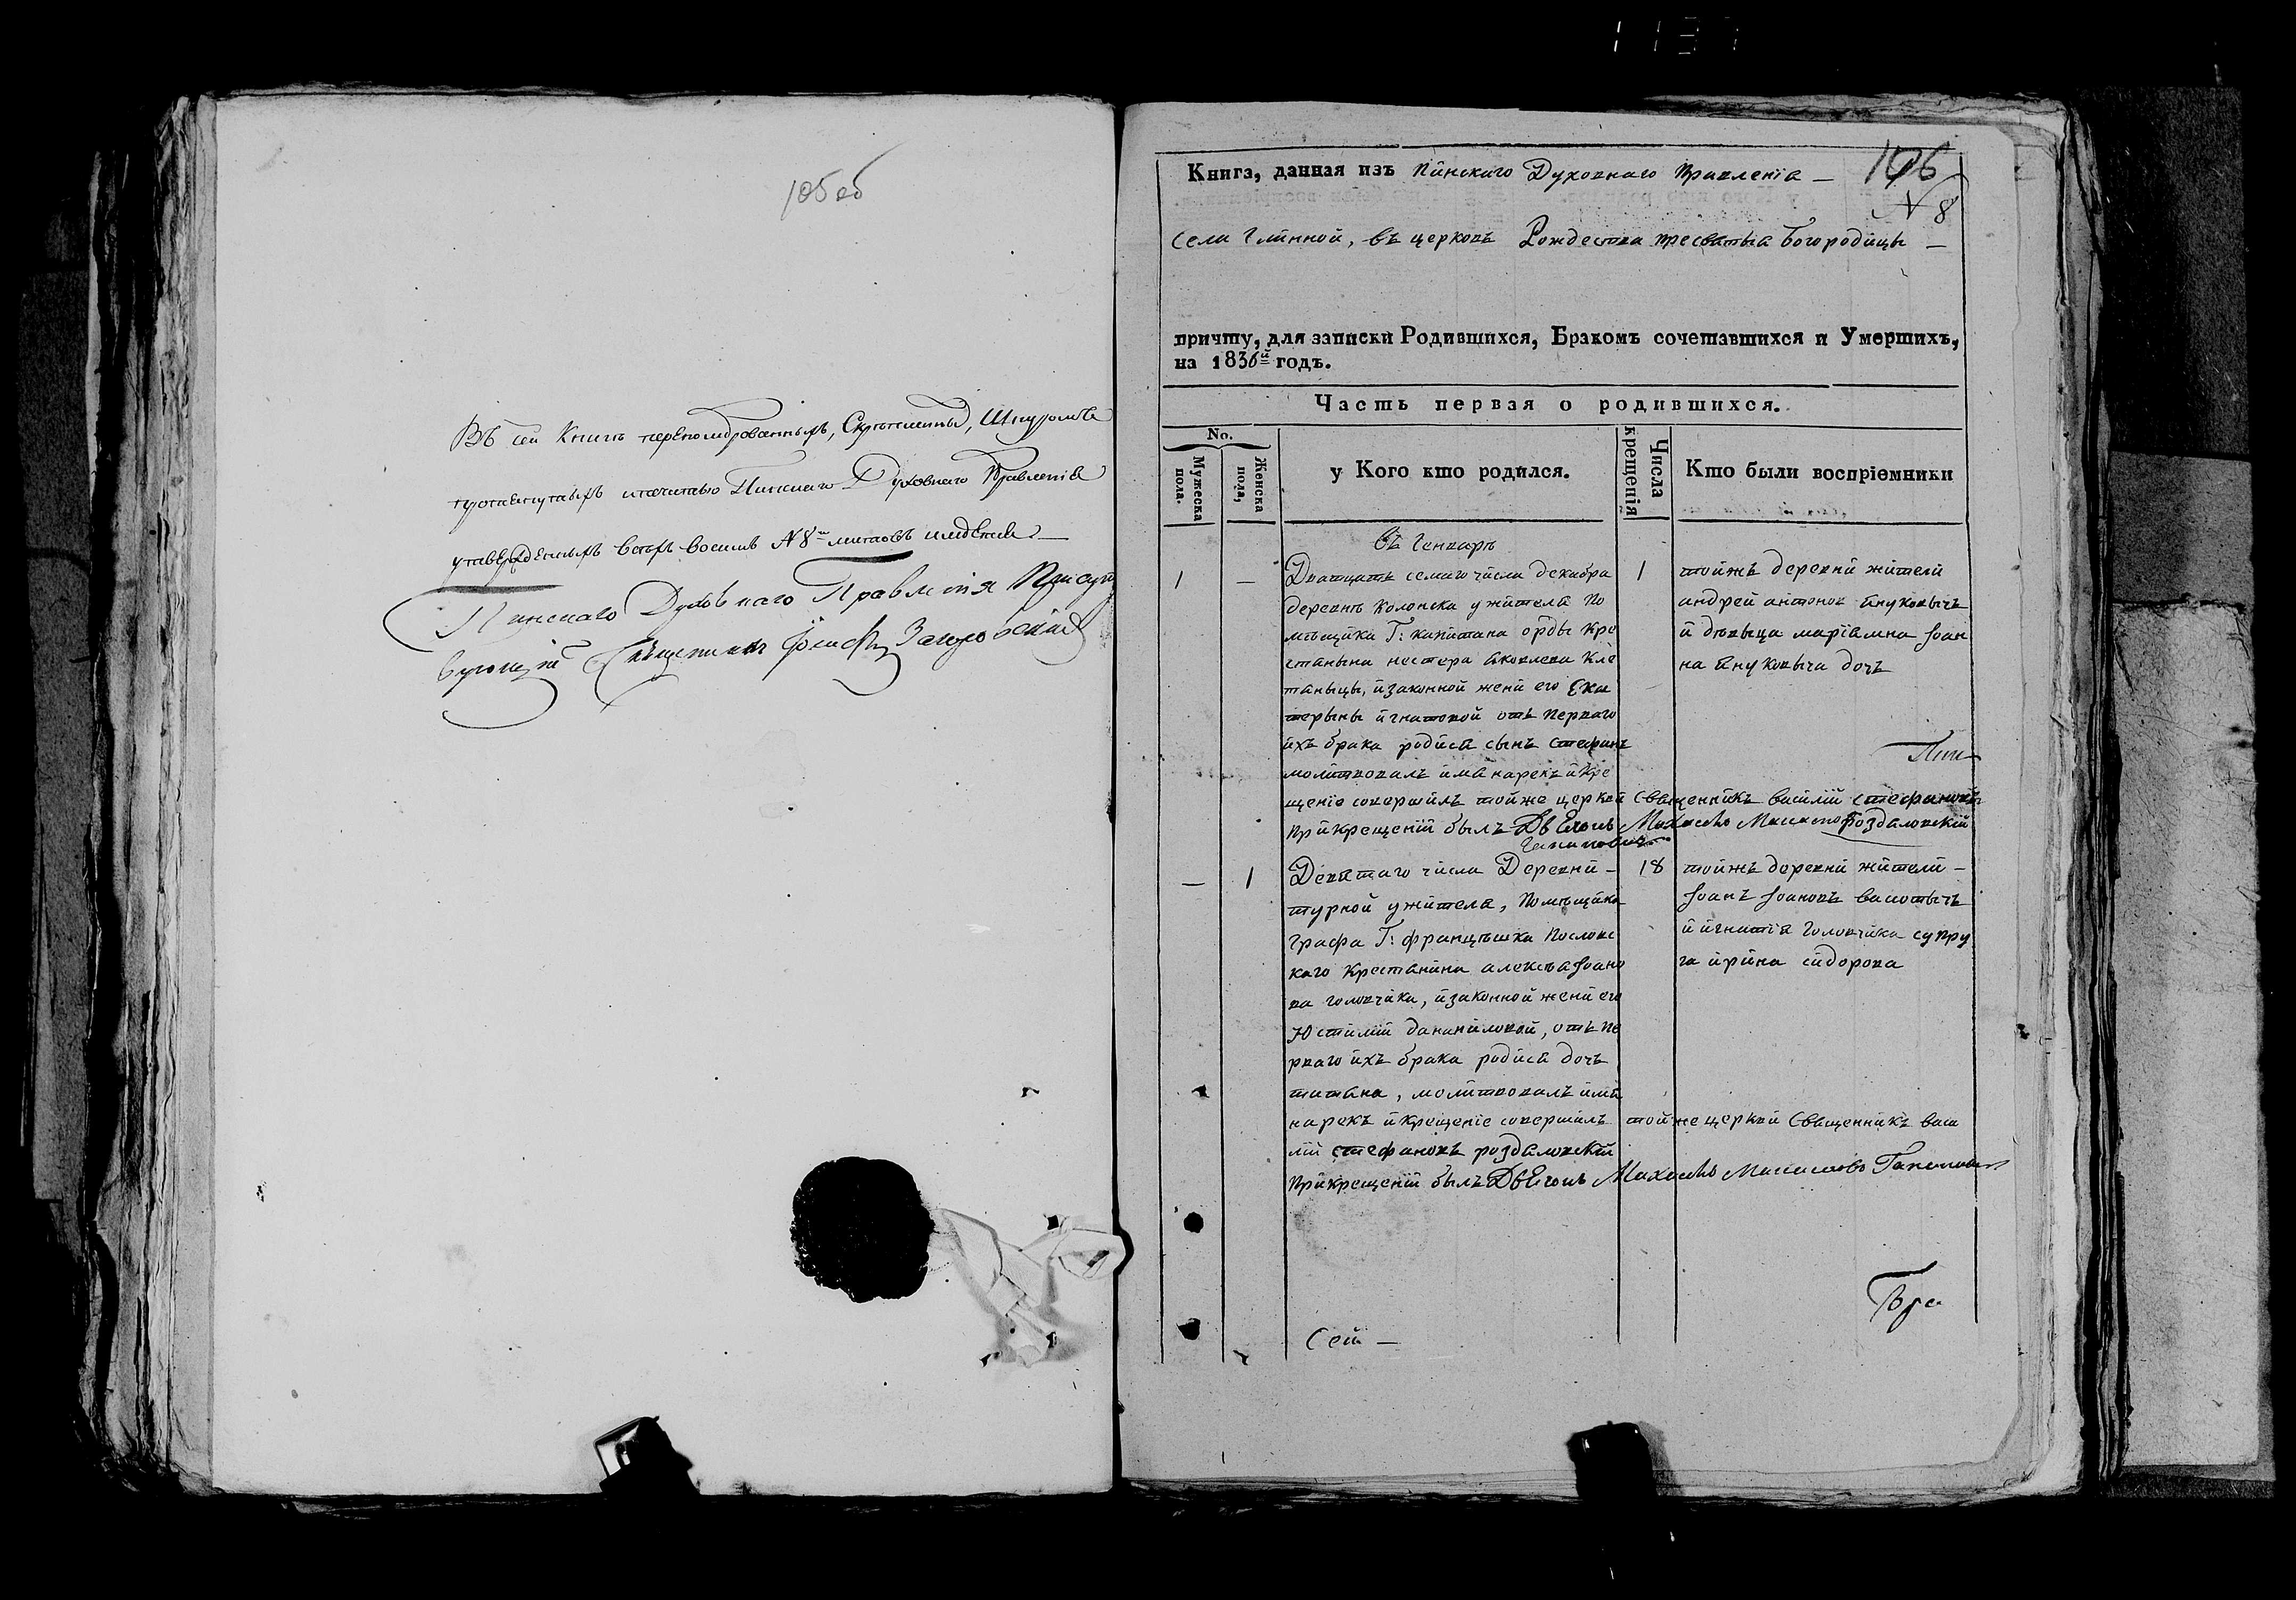 1137
105 об
Въ сей Книгѣ перенумерованныхъ, Скрѣпленныхъ, Шнуромъ
протянутыхъ и печатью Пинскаго Духовнаго Правленія
утвержденныхъ всѣхъ восемь N 8й листовъ
Пинскаго Духовнаго Правленія Присут
вующій Священникъ Іосифъ
106
N 8
Книга, данная изъ Пинскаго Духовнаго Правленія —
села Глинной, въ церковь Рождества пресвятыя богородицы —
причту, для записки Родившихся, Бракомъ сочетавшихся и Умершихъ,
на 1836й годъ.
Часть первая о родившихся.
No.
Мужеска пола.
Женска пола,
у Кого кто родился.
Числа крещенія
Кто были воспріемники
въ Генварѣ
1 — Дваццать семаго числа декабра
деревнѣ колонска у жителя По
мѣщика Г: капитана орды Кре
стянына нестера яковлева Кле
таныцы, и законной жени его Ека
терыны игнатовой отъ Перваго
ихъ брака родися сынъ стефанъ
молитвовалъ имя нарекъ и Кре
щеніе совершилъ тойже церкви Священникъ василій стефановъ
При крещеніи былъ Роздаловскій
1 тойжъ деревни жители
андрей антонов януковычъ
и дѣвыца маріямна Іоан
на януковыча дочъ
Пин
— 1 Девятаго числа Деревни —
турной у жителя, Помѣщика
графа Г: францѣшка Пословс
каго Крестянина алексѣя Іоано
ва головчика, и законной жени его
Юстиліи даниловой, отъ пе
рваго ихъ брака родися дочъ
татяна, молитвовалъ имя
нарекъ и крещеніе совершилъ тойже церкви Священникъ васи
лій стефановъ роздаловскій
При крещеніи былъ
18 тойжъ деревни жители —
Іоанъ Іоановъ
и игнатія Головчика супру
га ирина сидорова
Сей —